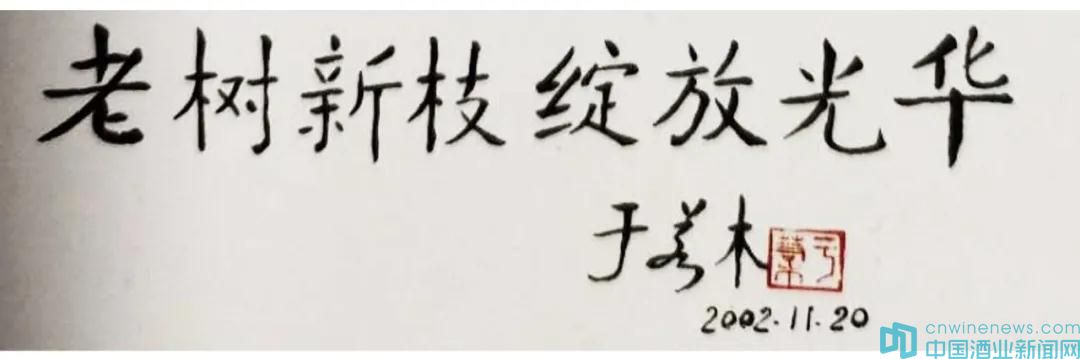 老树新枝绽放光华
于若木
2002.11.20
cnwinenews.com
中国酒业新闻网